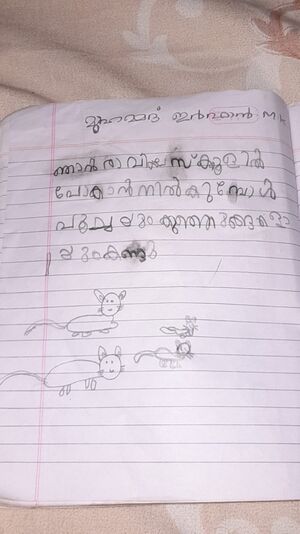 മുഹമ്മദ് ഇർഫാൻ M K
ഞാൻ രാവിലെ സ്ക്കൂളിൽ
പോകാൻ നിൽകുമ്പോൾ
പൂച്ചയും കുഞ്ഞുങ്ങളെ
യും കണ്ടു